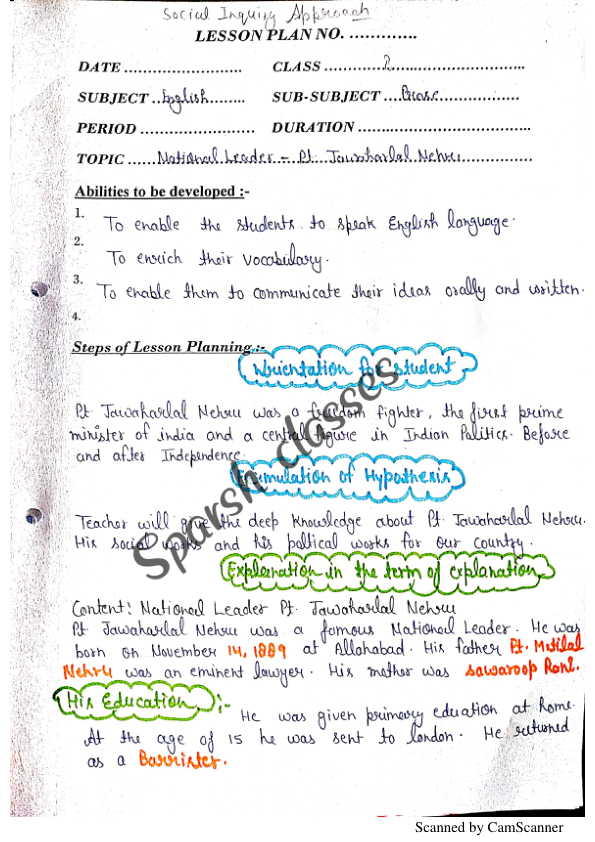 Social Inquiry Approach
LESSON PLAN NO. .............
DATE ......................... CLASS ..............................
SUBJECT ..English......... SUB-SUBJECT ....Prose.................
PERIOD ......................... DURATION .....................................
TOPIC ......National Leader – Pt. Jawaharlal Nehru...............
Abilities to be developed :-
1. To enable the students to speak English language.
2. To enrich their vocabulary.
3. To enable them to communicate their ideas orally and written.
4.
Steps of Lesson Planning :-
Orientation for student
Pt Jawaharlal Nehru was a freedom fighter, the first prime
minister of india and a central figure in Indian Politics. Before
and after Independence.
Formulation of Hypothesis
Teacher will give the deep knowledge about Pt Jawaharlal Nehru.
His social works and his poltical works for our country.
Explenation in the term of explanation
Content: National Leader Pt. Jawaharlal Nehru
Pt Jawaharlal Nehru was a famous National Leader. He was
born on November 14, 1889 at Allahabad. His father Pt. Motilal
Nehru was an eminent lawyer. His mother was Sawaroop Rani.
His Education :-
He was given primary eduation at Home.
At the age of 15 he was sent to london. He returned
as a Barrister.
Sparsh classes
Scanned by CamScanner